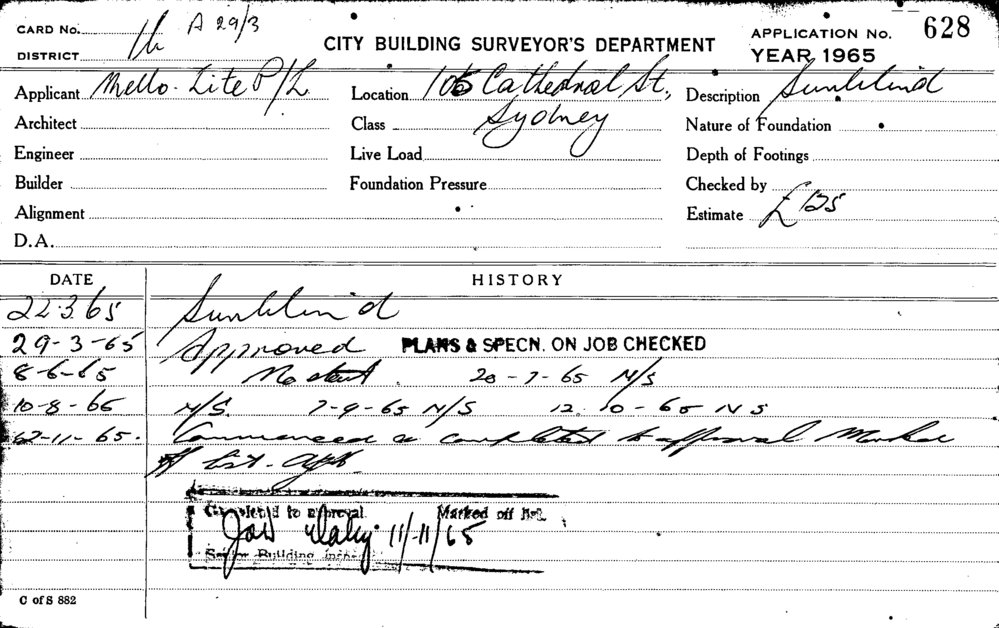 CARD No. A 29/3
DISTRICT
CITY BUILDING SURVEYOR'S DEPARTMENT
APPLICATION No. 628
YEAR 1965
Applicant Mello-Lite P/L
Location 105 Cathedral St,
Description Sunblind
Architect
Class Sydney
Nature of Foundation
Engineer
Live Load
Depth of Footings
Builder
Foundation Pressure
Checked by
Alignment
Estimate £125
D.A.
DATE HISTORY
22.3.65 Sunblind
29-3-65 Approved PLANS & SPECN. ON JOB CHECKED
8-6-65 No start. 20-7-65 N/S
10-8-65 N/S. 7-9-65 N/S 12.10-65 NS
12-11-65. Commenced & completed to approval Marked
off list.
Completed to approval. Marked off
11/11/65
Senior Building
C of S 882